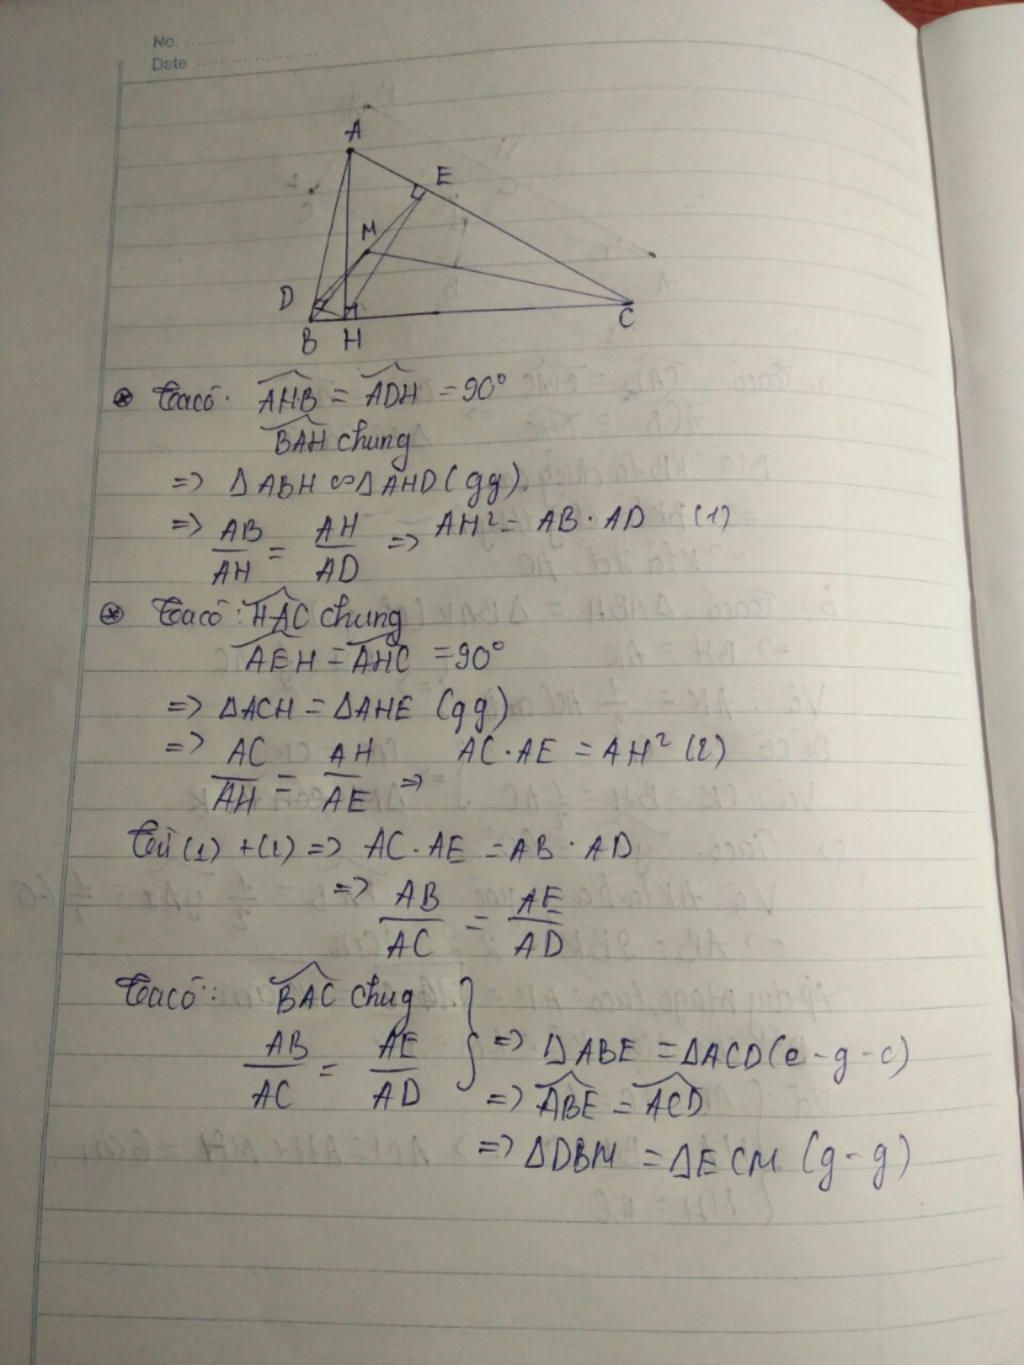 No. ..........
Date ..................
A
E
M
D
B H
C
⊛ Ta có: \widehat{AHB} = \widehat{ADH} = 90°
\widehat{BAH} chung
=> ΔABH ∽ ΔAHD (gg)
=> AB/AH = AH/AD => AH² = AB · AD (1)
⊛ Ta có: \widehat{HAC} chung
\widehat{AEH} = \widehat{AHC} = 90°
=> ΔACH = ΔAHE (gg)
=> AC/AH = AH/AE => AC · AE = AH² (2)
Từ (1) + (2) => AC · AE = AB · AD
=> AB/AC = AE/AD
Ta có: \widehat{BAC} chug
AB/AC = AE/AD } => ΔABE = ΔACD (c - g - c)
=> \widehat{ABE} = \widehat{ACD}
=> ΔDBM = ΔECM (g - g)